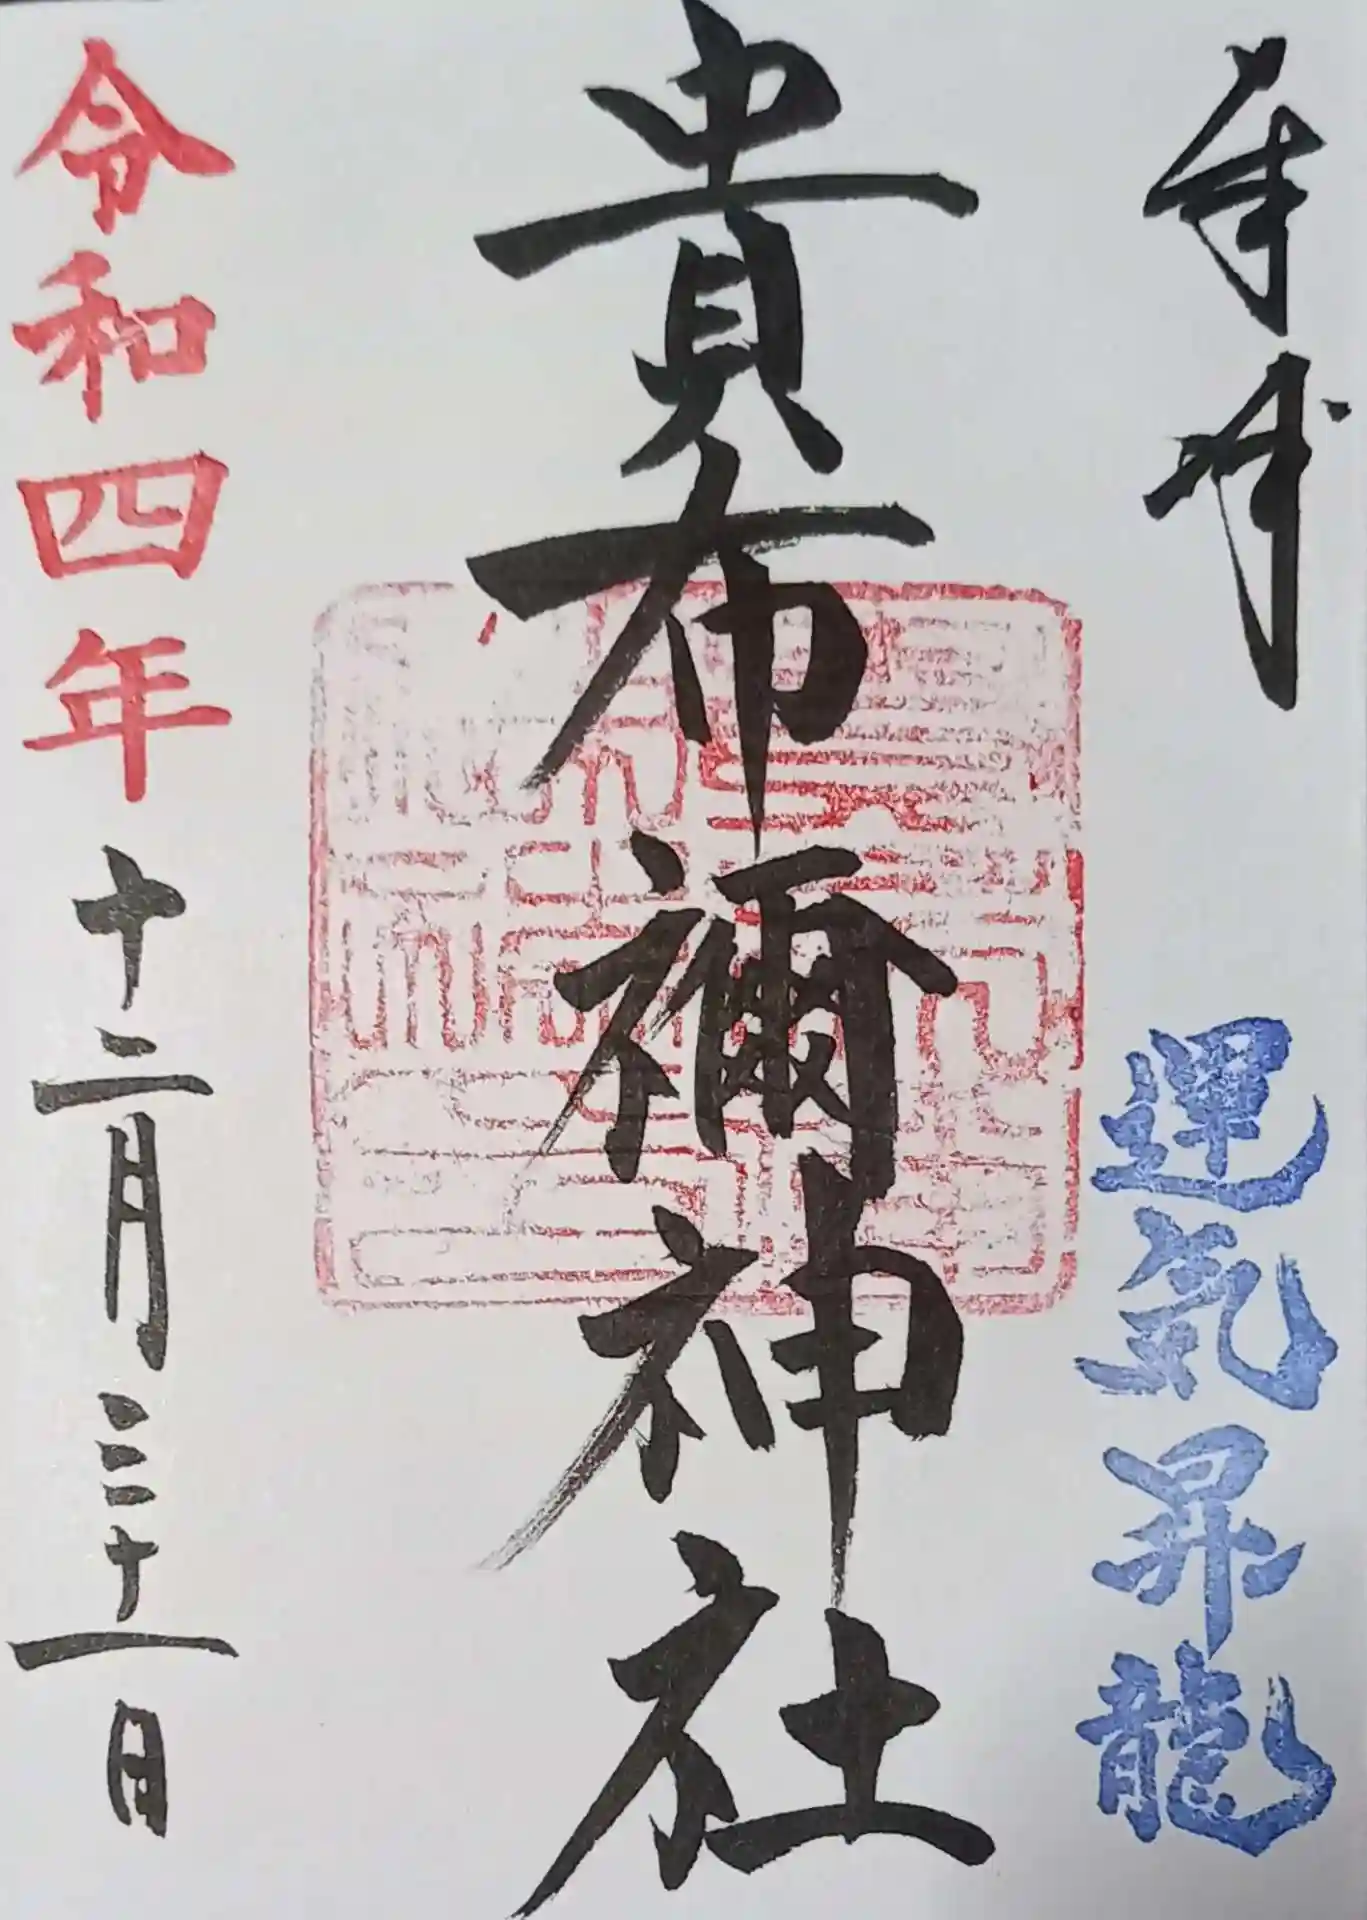 奉拝
運気昇龍
貴布禰神社
令和四年十二月三十一日